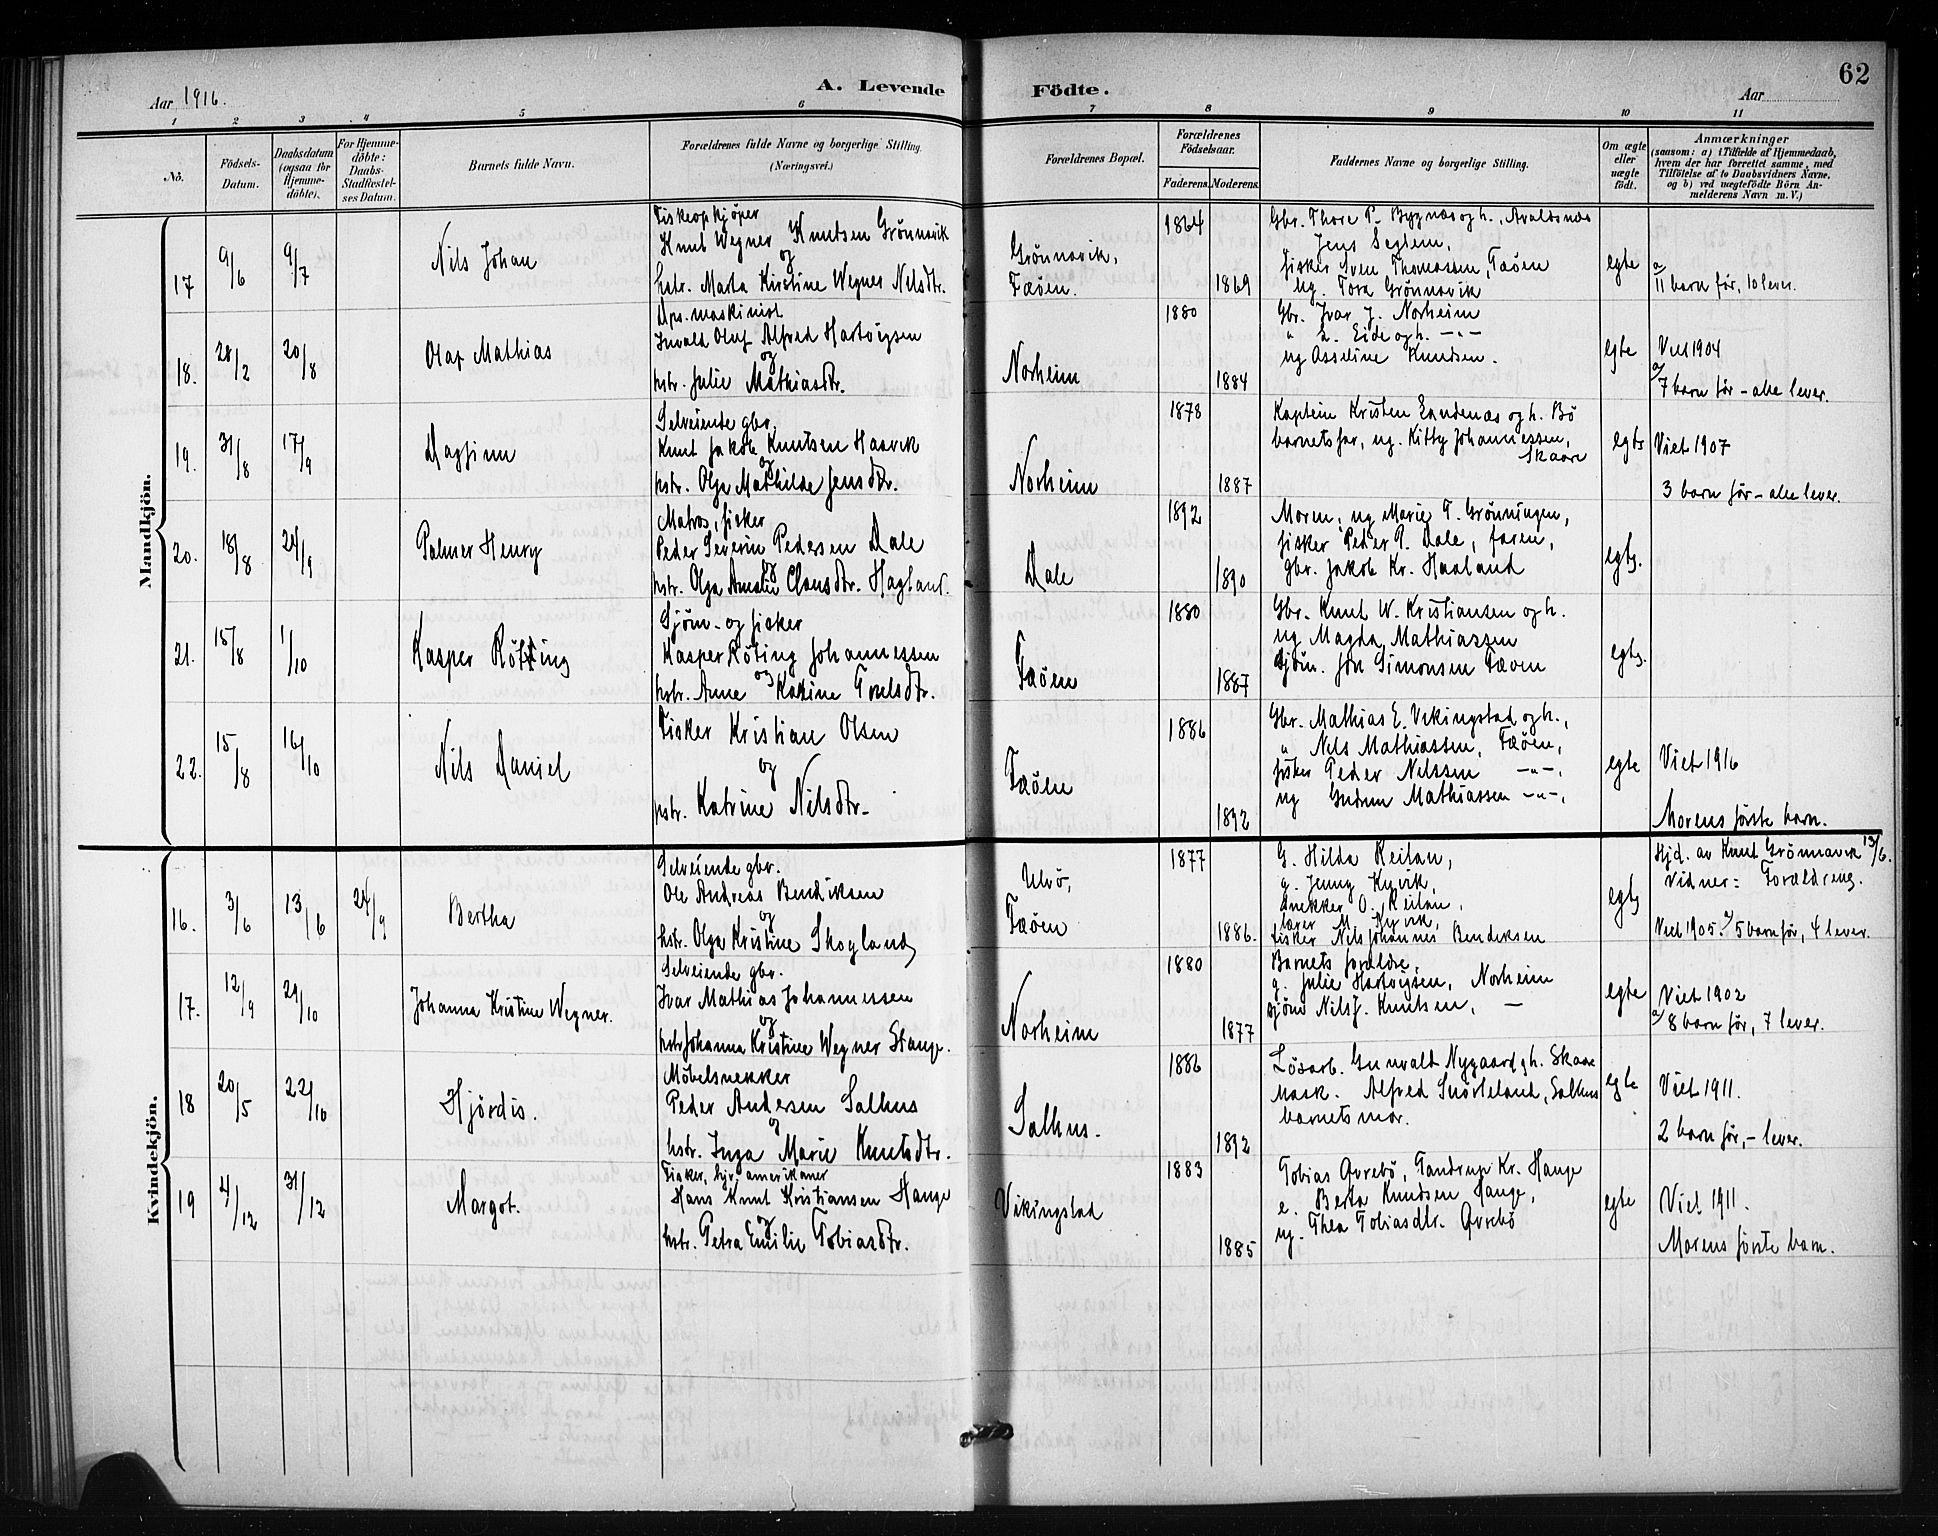 62
Aar 1916.
A. Levende
Födte.
Aar
1 2 3 4 5 6 7 8 9 10 11
No.
Födsels-Datum.
Daabsdatum (ogsaa for Hjemme-döbte).
For Hjemme-döbte: Daabs-Stadfæstel-ses Datum.
Barnets fulde Navn.
Forældrenes fulde Navne og borgerlige Stilling. (Næringsvei.)
Forældrenes Bopæl.
Forældrenes Födselsaar.
Faderens. Moderens.
Faddernes Navne og borgerlige Stilling.
Om ægte eller uægte födt.
Anmærkninger
(saasom: a) i Tilfælde af Hjemmedaab,
hvem der har forrettet samme, med
Tilföielse af to Daabsvidners Navne,
og b) ved uægtefödte Börn An-
melderens Navn m. V.)
Mandkjön.
17 9/6 9/7 Nils Johan
Fiskeopkjöper
Knut Wegner Knutsen Grönnevik
og
hstr. Marta Kirstine Wegner Nilsdtr.
Grönnevik,
Fæöen.
1864
1869
Gbr. Thore P. Bygnes og h., Avaldsnes
Jens Seglem,
fisker Sven Thomassen, Fæöen
ug. Tora Grönnevik
egte
a
11 barn før, 10 lever.
18. 28/2 20/8 Olaf Mathias
Dps. maskinist
Invald Oluf Alfred Hartvigsen
og
hstr. Julie Mathiasdtr.
Norheim
1880
1884
Gbr. Ivar J. Norheim
" L. Eide og h. -"-
ug Asseline Knudsen.
egte
Viet 1904
a/
7 barn før - alle lever.
19. 31/8 17/9 Dagfinn
Selveiende gbr.
Knut Jakob Knutsen Haavik
og
hstr. Olga Mathilde Jensdtr.
Norheim
1878
1887
Kaptein Kristen Sandenæs og h. Bö
barnets far, ug. Kitty Johannessen,
Skaare
egte
Viet 1907
3 barn før - alle lever.
20. 18/8 24/9 Palmer Henry
Matros, fisker
Peder Severin Pedersen Dale
og
hstr. Olga Amalie Clausdtr. Hagland.
Dale
1892
1890
Moren, ug Marie T. Grönningen,
fisker Peder P. Dale, faren,
Gbr. Jakob Kr. Haaland
egte.
21. 15/8 1/10 Kasper Röthing
Sjöm- og fisker
Kasper Röting Johannessen
og
hstr. Anne Katrine Troelsdtr.
Fæöen
1880
1887
Gbr. Knut W. Kristiansen og h.
ug Magda Mathiassen
Sjöm. Jon Simonsen Fæöen
egte.
22. 15/8 16/10 Nils Daniel
Fisker Kristian Olsen
og
hstr. Katrine Nilsdtr.
Fæöen
1886
1892
Gbr. Mathias E. Vikingstad og h.,
" Nils Mathiassen, Fæöen,
fisker Peder Nilssen -"-,
ug Gudrun Mathiassen -"-,
egte
Viet 1916
Morens første barn.
Kvindekjön.
16. 3/6 13/6 24/9 Bertha
Selveiende gbr.
Ole Andreas Bendiksen
og
hstr. Olga Kristine Skogland
Ulvö,
Fæöen
1877
1886.
G. Hilda Keilan,
g. Jenny Kyvik,
snekker O. Keilan,
lærer M. Kyvik,
fisker Nils Johannes Bendiksen
egte
Hjd. av Knut Grönnevik 13/6.
Vidner: Forældrene.
Viet 1905. a/ 5 barn før, 4 lever.
17. 12/9 29/10 Johanna Kristine Wegner.
Selveiende gbr.
Ivar Mathias Johannessen
og
hstr Johanna Kristine Wegner Stange.
Norheim
1880
1877
Barnets foreldre,
g. Julie Hartvigsen, Norheim
sjöm Nils J. Knutsen, —
egte
Viet 1902
a/ 8 barn før, 7 lever.
18 20/5 22/10 Hjördis.
Möbelsnekker
Peder Andersen Salhus
og
hstr. Inga Marie Knutsdtr.
Salhus.
1886
1892
Lösarb. Gunvald Nygaard g h. Skaare
Mask. Alfred Snörteland, Salhus
barnets mor.
egte
Viet 1911.
2 barn før, - lever.
19 4/12 31/12 Margot.
Fisker, hjv. amerikaner
Hans Knut Kristiansen Hauge
og
hstr. Petra Emilie Tobiasdtr.
Vikingstad
1883
1885
Tobias Qvrebö, Tandrup Kr. Hauge
e. Berta Knudsen Hauge,
ug. Thea Tobiasdtr. Qvrebö
egte
Viet 1911.
Morens første barn.